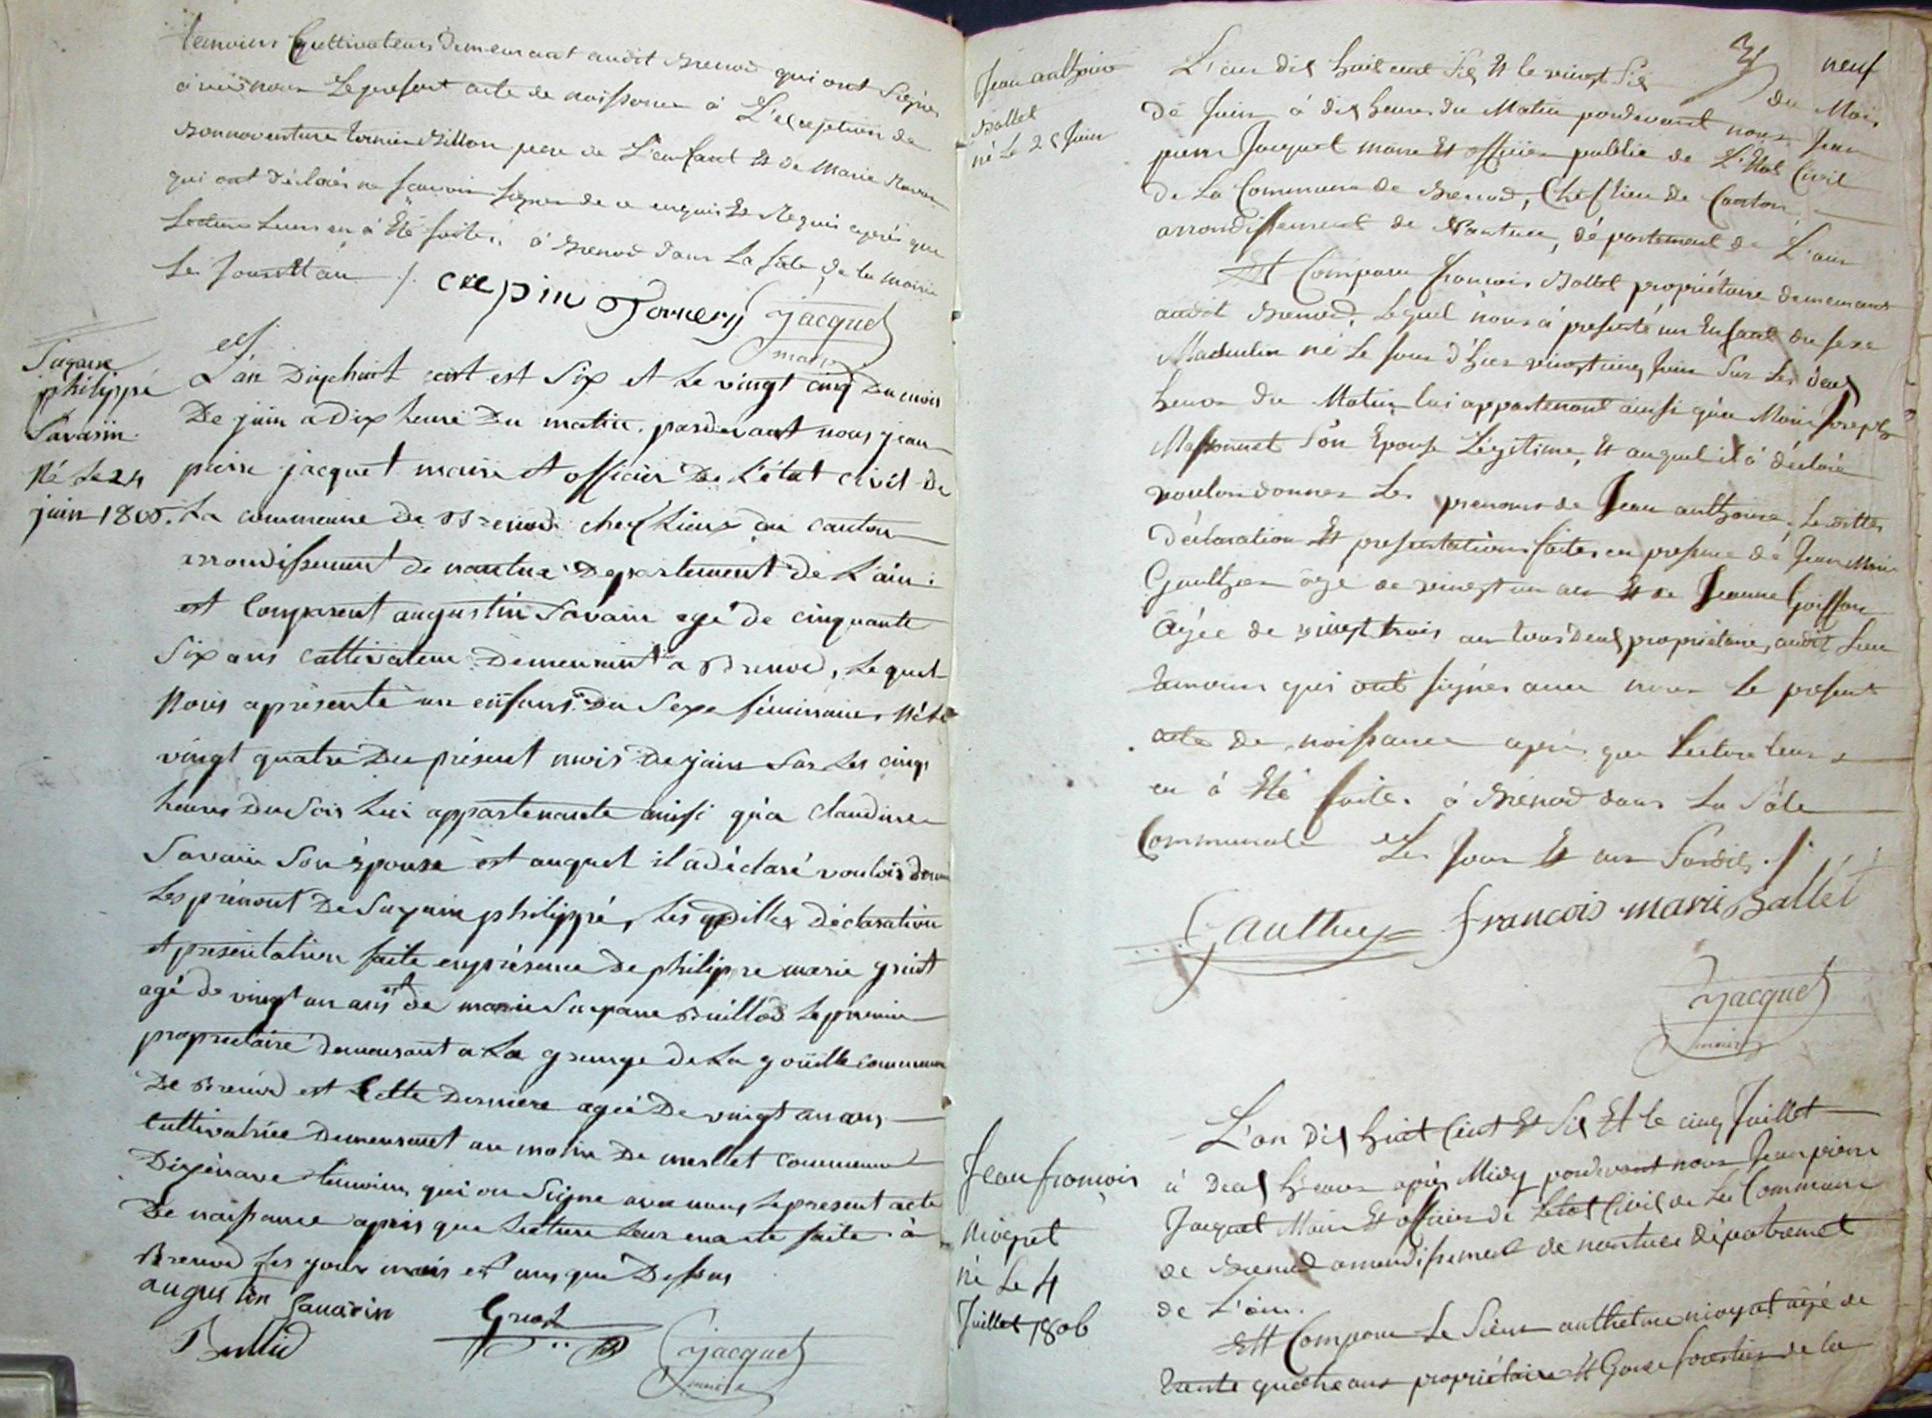 temoins Cultivateurs demeurant audit Brenod qui ont signés
avec nous Le present acte de naissance à L'exception de
Bonnaventure Billon pere de L'enfant Et de Marie
qui ont déclarés ne savoir signer de ce enquis Et Requis après que
Lecture Leur en à Eté faite. à Brenod dans La sâle de la mairie
Les Jours Et an /. crepin Tornery Jacquet
maire
Sugane
philippé
Savarin
Né Le 24
juin 1806.
L'an Dixhuit cent est Six et Le vingt cinq Du mois
De juin a Dix heure Du matin. pardevant nous jean
pierre jacquet maire et officier De L'état civil De
La commune De Brenod chef Lieux du canton
arrondissement de nantua Departement De L'ain.
est Comparent augustin Savarin agé De cinquante
Six ans cultivateur Demeurant a Brenod, Lequel
Nous a présenté un enfans Du Sexe féminain Né Le
vingt quatre Du présent mois De juin Sur Les cinq
heures Du Soir Lui appartenante ainsi qu'a claudine
Savarin Son épouse est auquel il a déclaré vouloir donné
Les prénont De Sugane philippé, Les quelles Déclaration
et présentation faite en présence De philippe marie griot
agé de vingt un ans et de marie Sugane Buillod Le premier
propriétaire demeurant a La grange de La gouille commune
De Brenod est Cette Dernière agée De vingt un ans
Cultivatrice Demeurant au molin De meslet commune
Dizenave témoins qui on Signe avec nous Le présent acte
De naissance après que Lecture Leur en a été faite à
Brenod Les jour mois et ans que Dessus
augustin Savarin Griot
Bullid Jacquet
maire
neuf
Jean anthoine
Ballet
né Le 25 Juin
L'an dix huit cent six Et le vingt six du Mois
de Juin à dix heures du Matin pardevant nous Jean
pierre Jacquet maire Et officier public de L'Etat Civil
de La Commune de Brenod, Chef lieu de Canton,
arrondissement de Nantua, département de L'ain
Est Comparu francois Ballet propriétaire demeurant
audit Brenod, Lequel nous à presenté un Enfant du sexe
Masculin né Le Jour d'hier vingt cinq Juin Sur Les deux
heures du Matin, lui appartenant ainsi qu'a Marie Josephte
Massonnet Son Epouse Légitime, Et auquel il à déclaré
vouloir donner Les prenoms de Jean anthoine. Lesdittes
déclaration Et presentation faites en presence de Jean Marie
Gauthier âgé de vingt un an Et de Jeanne Goiffon
âgée de vingt trois an tous deux propriétaire, audit Lieu
temoins qui ont signés avec nous le present
acte de naissance après que Lecture leur
en à Eté faite. à Brenod dans La Sâle
Communale Les Jour Et an Susdits ./.
Gauthier francois marie Ballet
Jacquet
maire
Jean francois
niogret
né Le 4
Juillet 1806
L'an dix huit Cent Et Six Et le cinq Juillet
à deux heures après Midy pardevant nous Jean pierre
Jacquet Maire Et officier de Letat Civil de La Commune
de Brenod arrondissement de nantua département
de L'ain.
Est Comparu Le Sieur anthelme niogret âgé de
trente quatre ans propriétaire Et Garde forestier de la